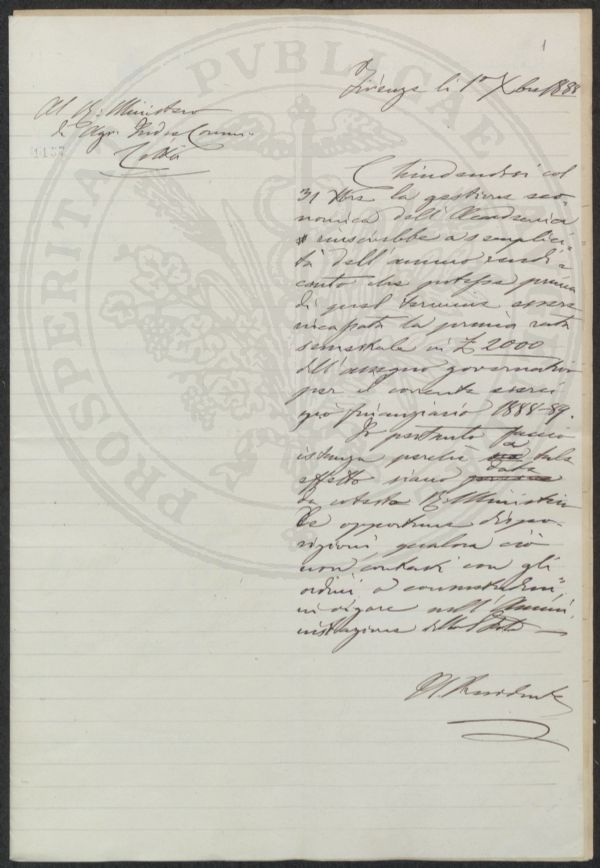 1
Firenze li 1° Xbre 1888
Al R. Ministero
di Agr. Indus Comm.
1137
Chiudendosi col
31 Xbre la gestione eco-
nomica dell'Accademia
riuscirebbe a semplici-
tà dell'annuo rendi-
conto che potesse prima
di quel termine essere
la prima rata
semestrale in £ 2000
dell'assegno governativo
per il corrente eserci
zio finanziario 1888-89.
Io pertanto faccio
istanza perchè a tale
effetto siano date
da cotesto R. Ministero
le opportune dispo-
sizioni qualora ciò
non contrasti con gli
ordini o consuetudini
in vigore nell'Ammi
nistrazione dello Stato
Il Presidente
PROSPERITA PVBLICAE